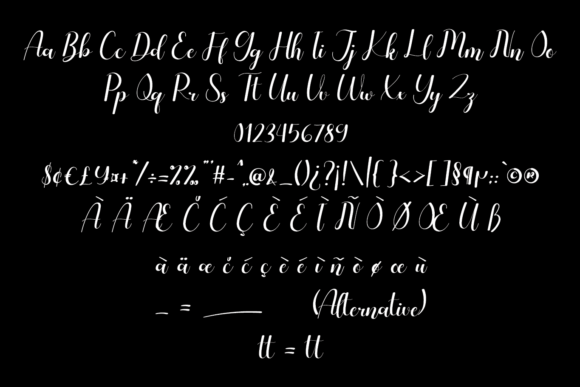 Aa Bb Cc Dd Ee Ff Gg Hh Ii Jj Kk Ll Mm Nn Oo
Pp Qq Rr Ss Tt Uu Vv Ww Xx Yy Zz
0123456789
$¢€£¥¤+*/÷=%‰"'#-^¨@&_()¿?¡!\|{}<>[]§¶µ::`©®
À Ä Æ Č Ć Ç È É Ì Ñ Ò Ø Œ Ù ß
à ä æ č ć ç è é ì ñ ò ø œ ù
_ = ____ (Alternative)
tt = tt